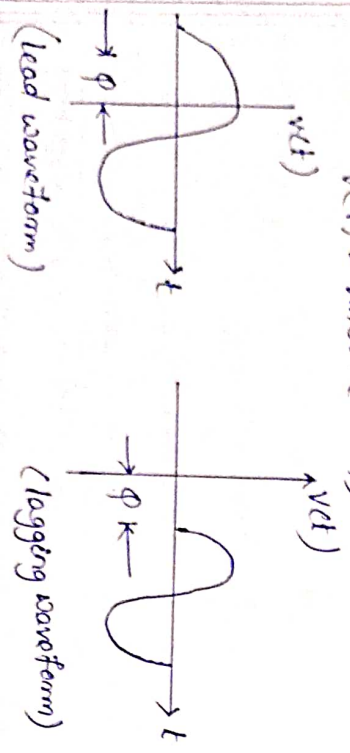 v(t)
t
φ
(lead waveform)
V(t)
t
φ
(lagging waveform)